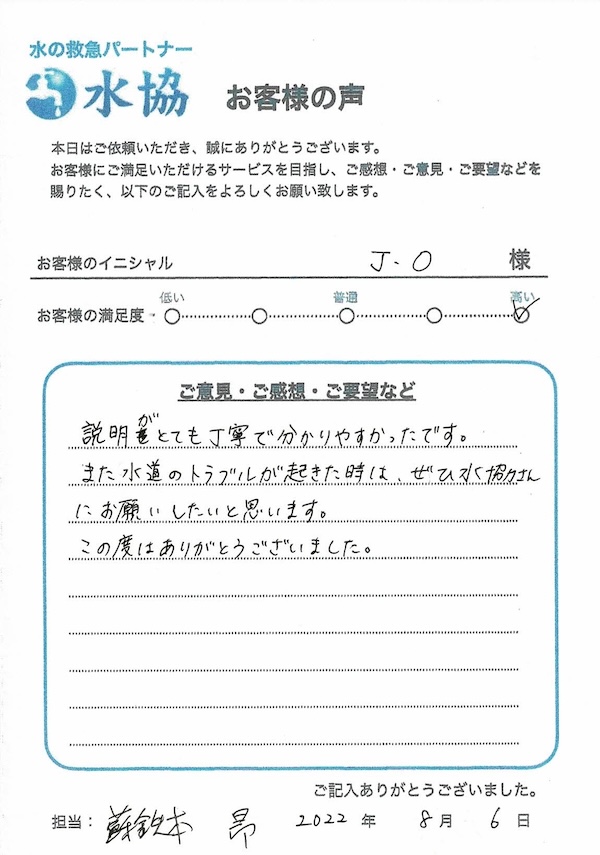 水の救急パートナー
水協 お客様の声
本日はご依頼いただき、誠にありがとうございます。
お客様にご満足いただけるサービスを目指し、ご感想・ご意見・ご要望などを
賜りたく、以下のご記入をよろしくお願い致します。
お客様のイニシャル J.O 様
低い 普通 高い
お客様の満足度
ご意見・ご感想・ご要望など
説明がとても丁寧で分かりやすかったです。
また水道のトラブルが起きた時は、ぜひ水協さん
にお願いしたいと思います。
この度はありがとうございました。
ご記入ありがとうございました。
担当: 蘇鉄本 昴 2022年 8月 6日